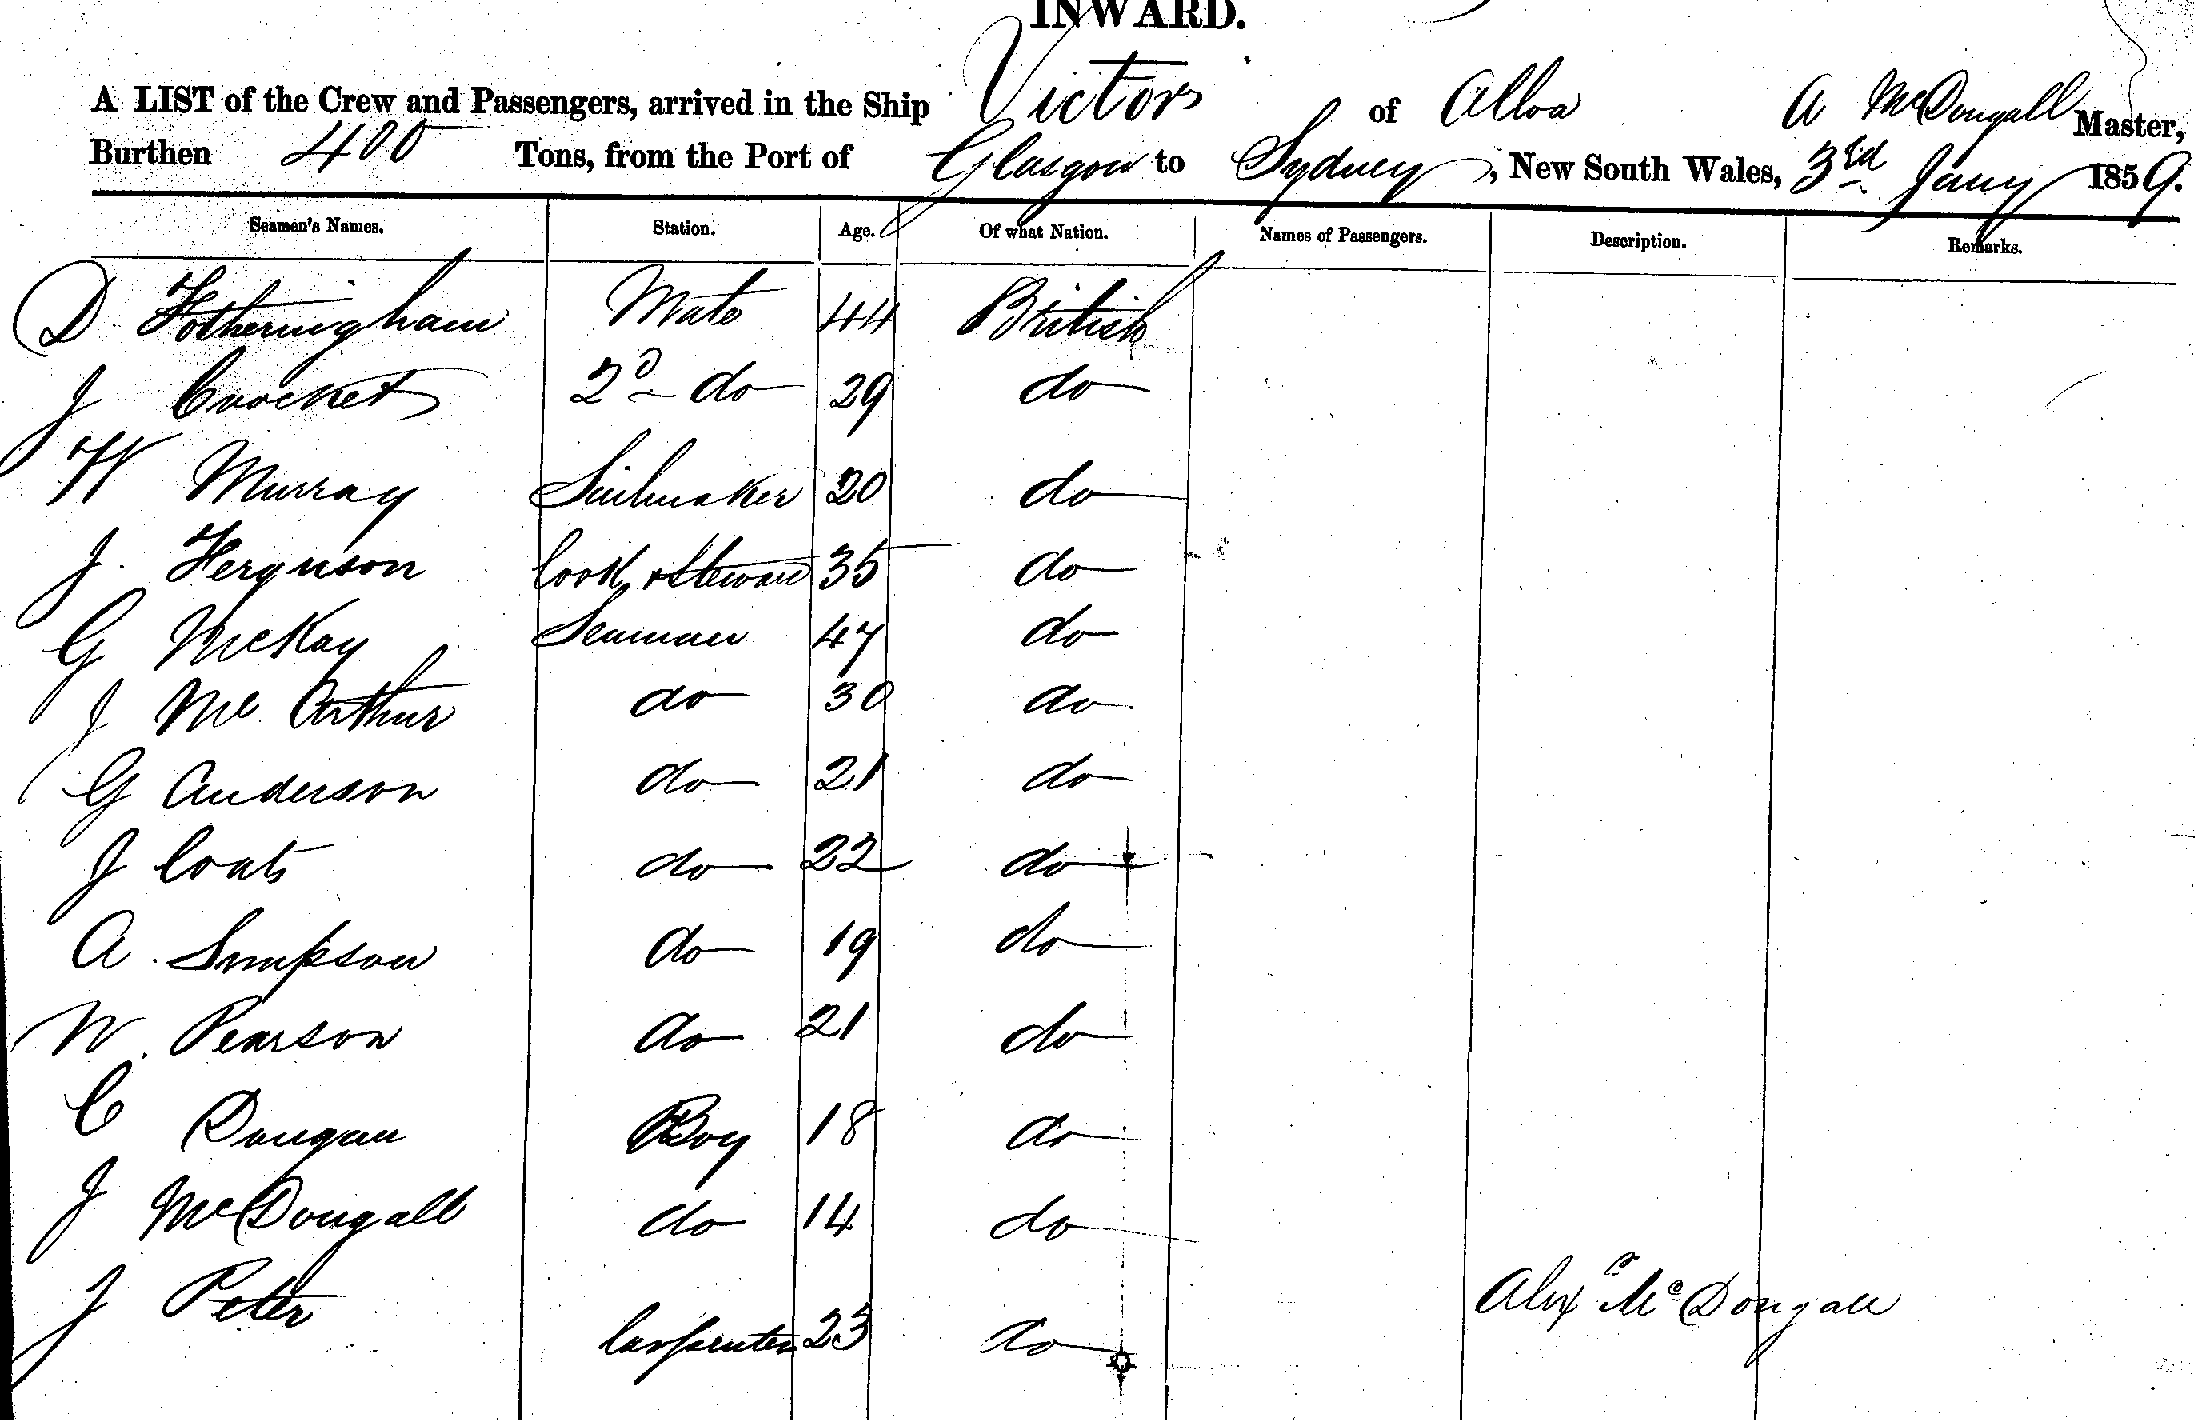 INWARD.
A LIST of the Crew and Passengers, arrived in the Ship Victor of Alloa A McDougall Master,
Burthen 400 Tons, from the Port of Glasgow to Sydney, New South Wales, 3rd Jany 1859.
Seamen's Names. Station. Age. Of what Nation. Names of Passengers. Description. Remarks.
D Fotheringham Mate 44 British
J Crocket 2d do 29 do
W Murray Sailmaker 20 do
J. Ferguson Cook & Steward 35 do
G McKay Seaman 47 do
J Mc Arthur do 30 do
G Anderson do 21 do
J Coats do 22 do
A. Simpson do 19 do
W. Pearson do 21 do
C Dougan Boy 18 do
J McDougall do 14 do
J Peter Carpenter 23 do
Alexr McDougall